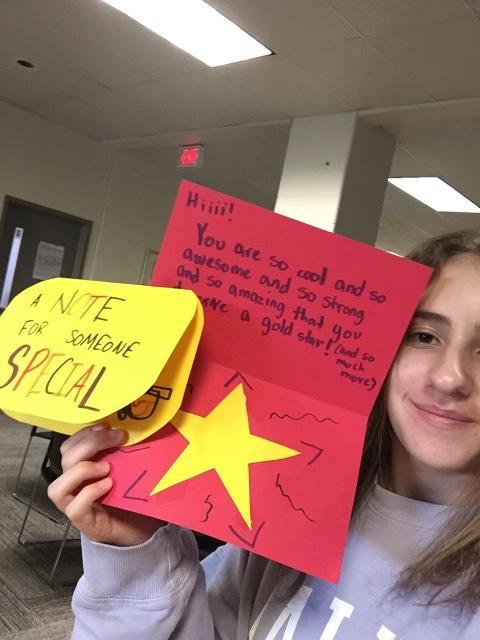 A NOTE
FOR SOMEONE
SPECIAL
Hiiii!
You are so cool and so
awesome and so strong
and so amazing that you
a gold star! (and so
much
more)